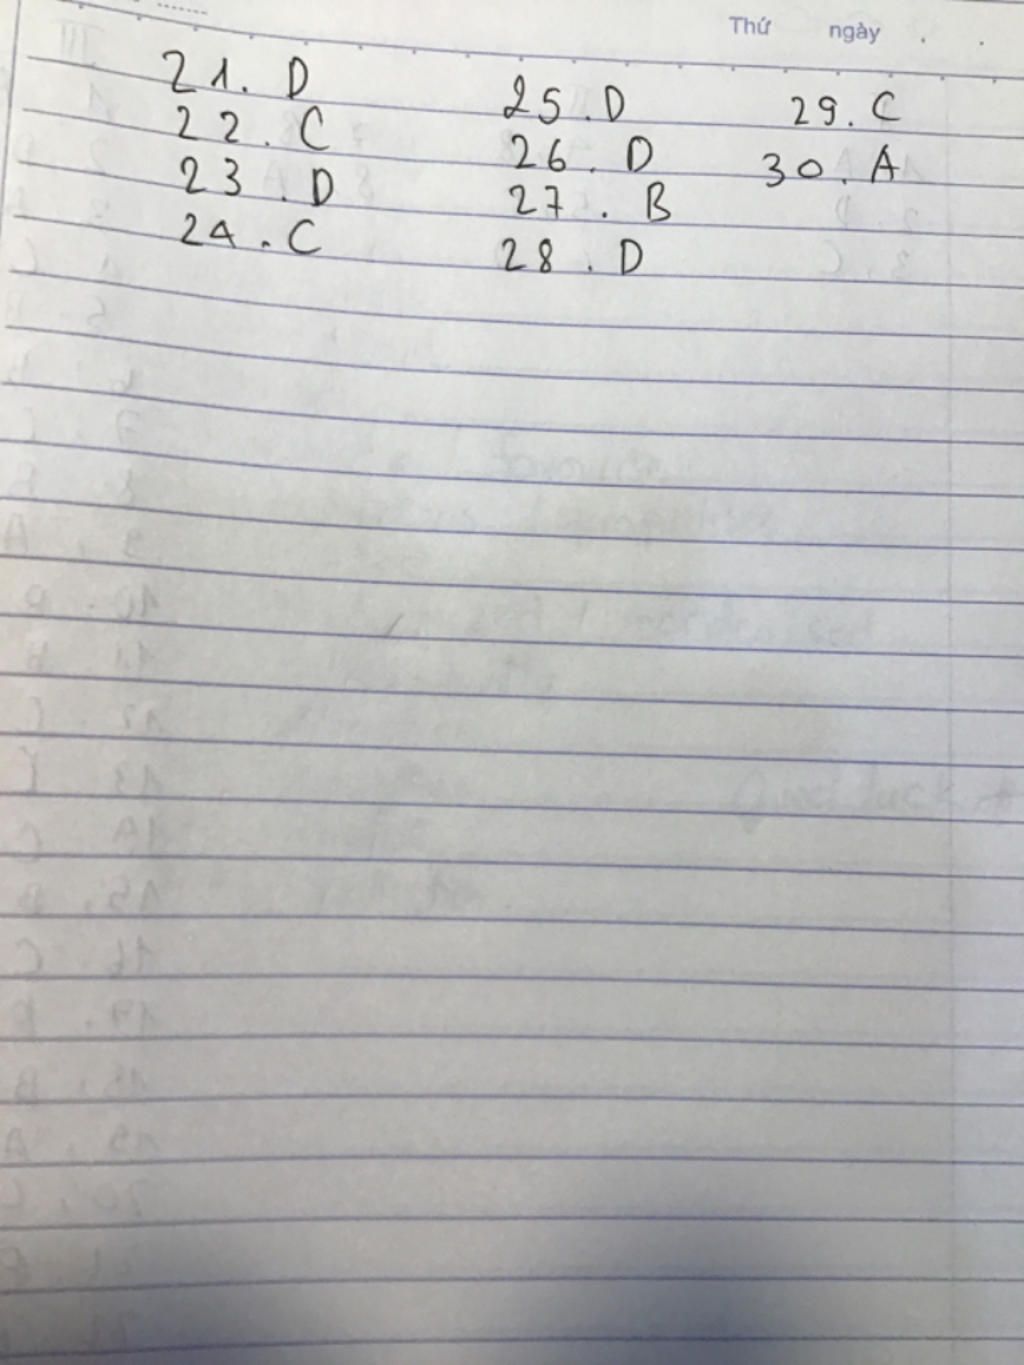 Thứ ngày
21. D
22. C
23. D
24. C
25. D
26. D
27. B
28. D
29. C
30. A